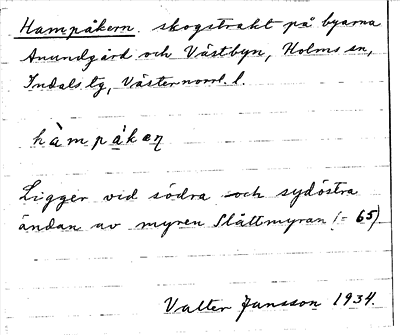 Hampåkern. skogstrakt på byarna
Anundgård och Västbyn, Holms sn,
Indals tg, Västernorrl. l.
hàmpåkeɳ
Ligger vid södra och sydöstra
ändan av myren Slåttmyran (= 65).
Valter Jansson 1934.